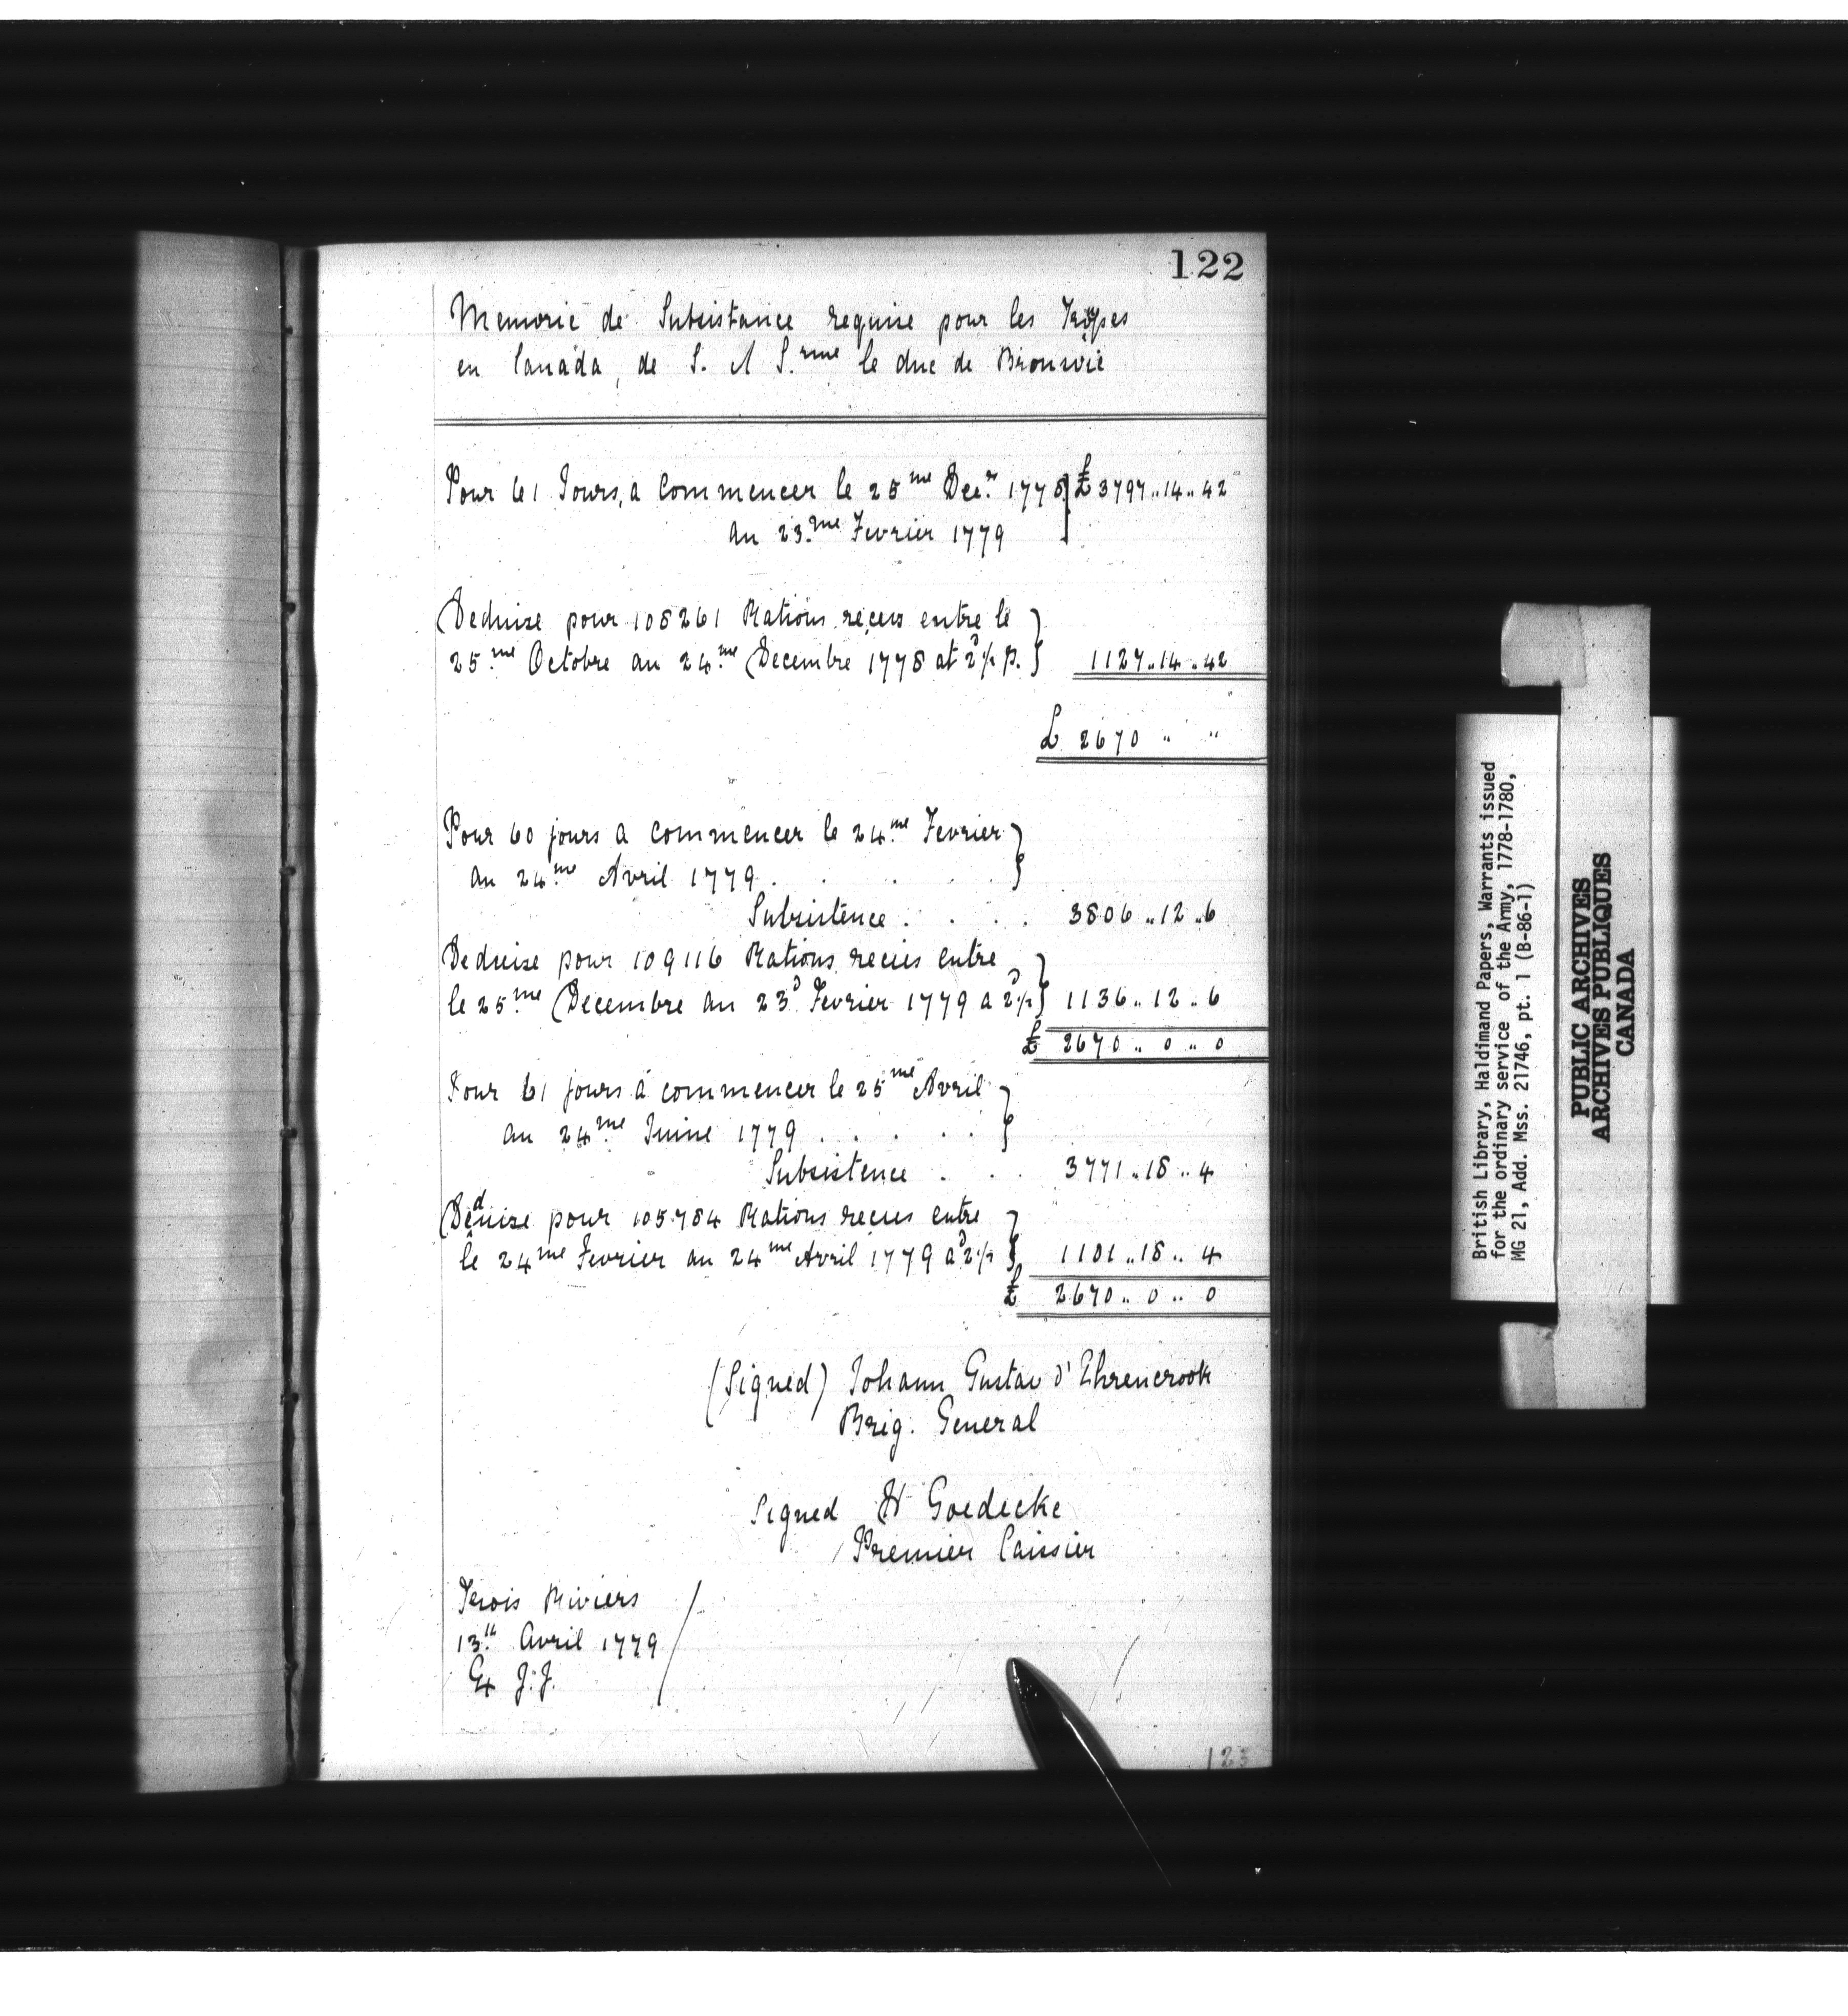 122
Memorie de Subsistance requise pour les Troupes
en Canada, de S. A S.rme le duc de Bronswic
Pour 61 Jours, a Commencer le 25me Decr 1778 } £ 3797..14..4 2
au 23.me Fevrier 1779
Deduise pour 108261 Rations recues entre le
25.me Octobre au 24.me Decembre 1778 at 2 1/2 p. } 1127..14..4 2
£ 2670 " "
Pour 60 jours a commencer le 24.me Fevrier
au 24.me Avril 1779 . . . }
Subsistence . . . . 3806..12..6
Deduise pour 109116 Rations recues entre
le 25.me Decembre au 23d Fevrier 1779 a 2d 1/2 } 1136..12..6
£ 2670..0..0
Pour 61 jours á commencer le 25me Avril
au 24.me Juine 1779 . . . . . }
Subsistence . . . 3771..18..4
Deduise pour 105784 Rations recues entre
le 24me Fevrier au 24me Avril 1779 a 2d 1/2 } 1101..18..4
£ 2670..0..0
(Signed) Johann Gustav d'Ehrencrook
Brig. General
Signed H Goedecke
Premier Caissier
Trois Riviers
13.th Avril 1779
Ex J.J.
123
British Library, Haldimand Papers, Warrants issued
for the ordinary service of the Army, 1778-1780,
MG 21, Add. Mss. 21746, pt. 1 (B-86-1)
PUBLIC ARCHIVES
ARCHIVES PUBLIQUES
CANADA